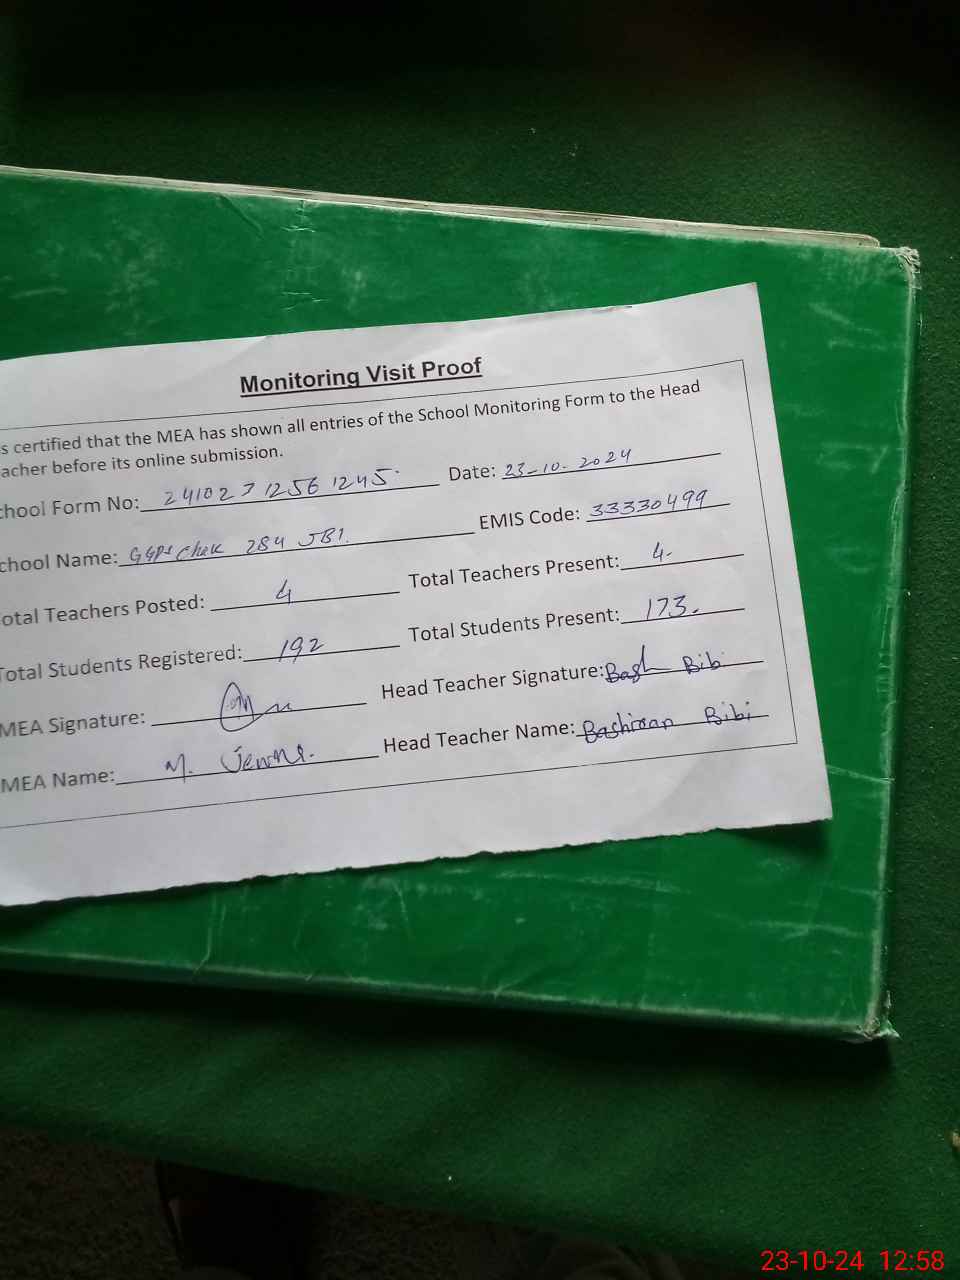 Monitoring Visit Proof
s certified that the MEA has shown all entries of the School Monitoring Form to the Head
acher before its online submission.
chool Form No: 2410237 1256 1245 Date: 23-10-2024
chool Name: GGPS Chak 284 JB1. EMIS Code: 33330499
otal Teachers Posted: 4 Total Teachers Present: 4.
Total Students Registered: 192 Total Students Present: 173.
MEA Signature: Head Teacher Signature: Bash Bibi
MEA Name: M. Head Teacher Name: Bashiran Bibi
23-10-24 12:58